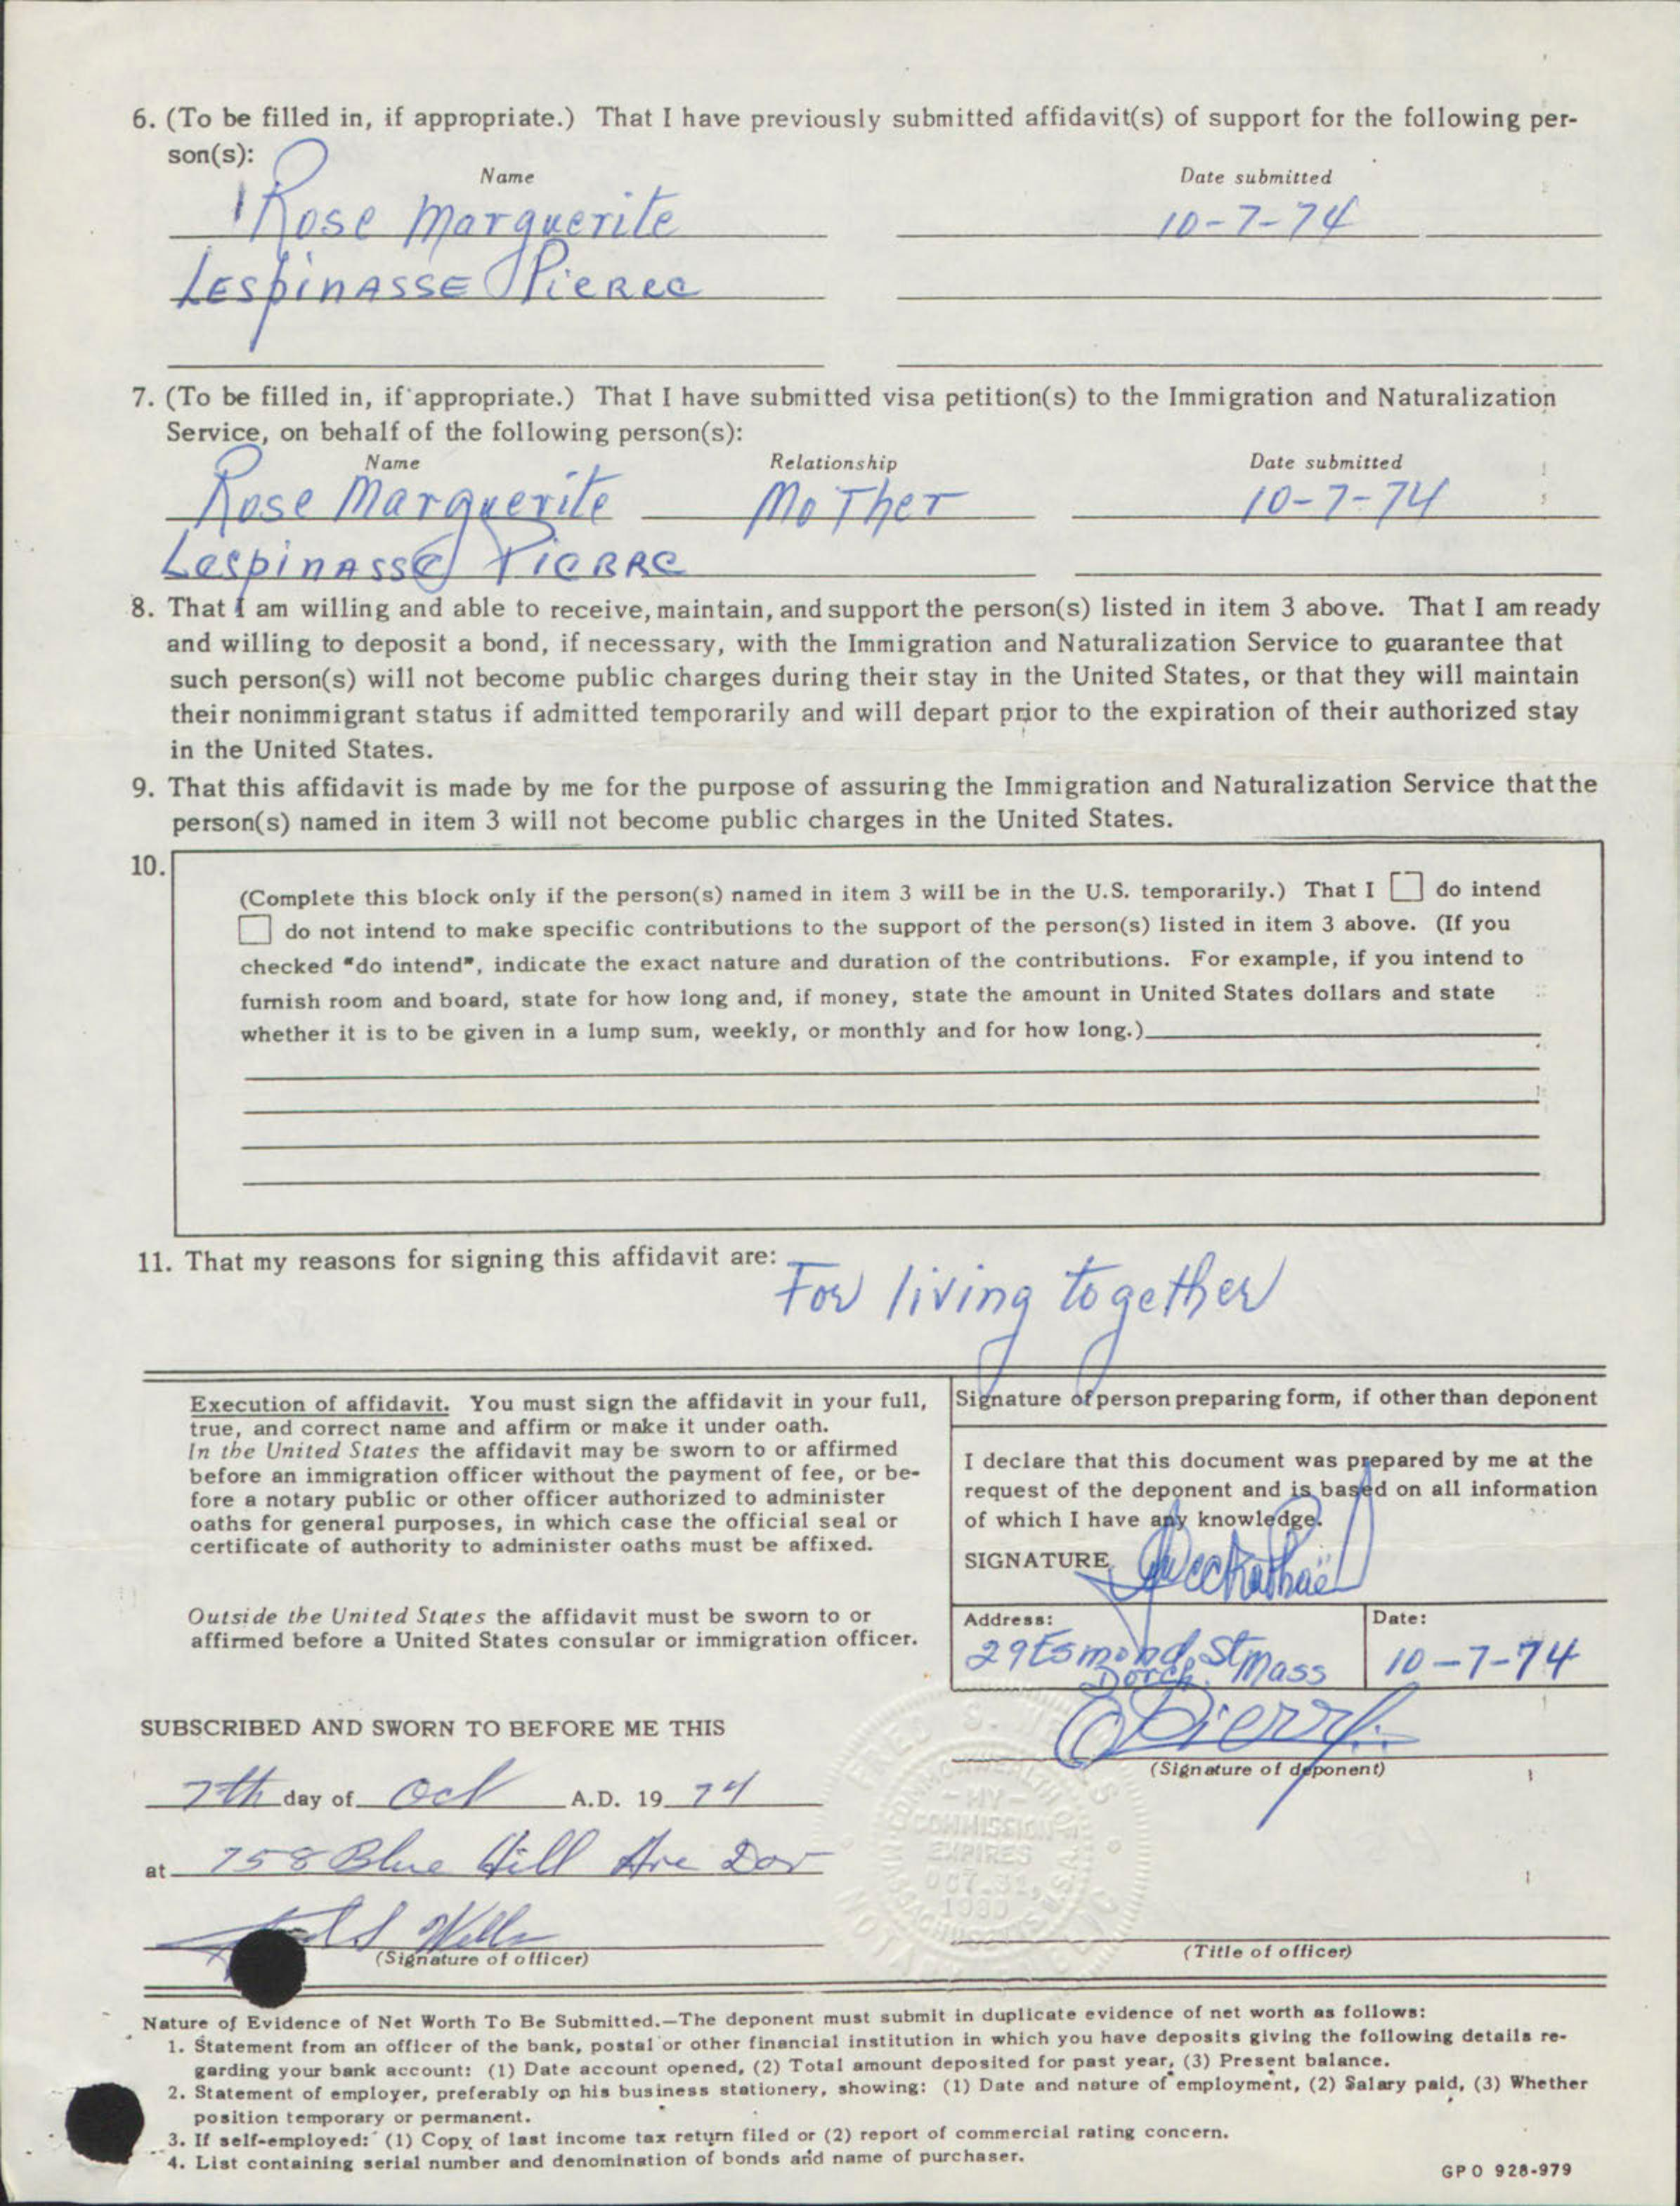 6. (To be filled in, if appropriate.) That I have previously submitted affidavit(s) of support for the following per-
son(s):
Name Date submitted
Rose Marguerite 10-7-74
Lespinasse Pierre
7. (To be filled in, if appropriate.) That I have submitted visa petition(s) to the Immigration and Naturalization
Service, on behalf of the following person(s):
Name Relationship Date submitted
Rose Marguerite Mother 10-7-74
Lespinasse Pierre
8. That I am willing and able to receive, maintain, and support the person(s) listed in item 3 above. That I am ready
and willing to deposit a bond, if necessary, with the Immigration and Naturalization Service to guarantee that
such person(s) will not become public charges during their stay in the United States, or that they will maintain
their nonimmigrant status if admitted temporarily and will depart prior to the expiration of their authorized stay
in the United States.
9. That this affidavit is made by me for the purpose of assuring the Immigration and Naturalization Service that the
person(s) named in item 3 will not become public charges in the United States.
10.
(Complete this block only if the person(s) named in item 3 will be in the U.S. temporarily.) That I do intend
do not intend to make specific contributions to the support of the person(s) listed in item 3 above. (If you
checked "do intend", indicate the exact nature and duration of the contributions. For example, if you intend to
furnish room and board, state for how long and, if money, state the amount in United States dollars and state
whether it is to be given in a lump sum, weekly, or monthly and for how long.)
11. That my reasons for signing this affidavit are: For living together
Execution of affidavit. You must sign the affidavit in your full,
true, and correct name and affirm or make it under oath.
In the United States the affidavit may be sworn to or affirmed
before an immigration officer without the payment of fee, or be-
fore a notary public or other officer authorized to administer
oaths for general purposes, in which case the official seal or
certificate of authority to administer oaths must be affixed.
Outside the United States the affidavit must be sworn to or
affirmed before a United States consular or immigration officer.
Signature of person preparing form, if other than deponent
I declare that this document was prepared by me at the
request of the deponent and is based on all information
of which I have any knowledge.
SIGNATURE
Address: Date:
29 Esmond St Mass 10-7-74
Dorch.
Pierre
(Signature of deponent)
SUBSCRIBED AND SWORN TO BEFORE ME THIS
7th day of Oct A.D. 19 74
at 758 Blue Hill Ave Dor
(Signature of officer)
FRED S.
NOTARY PUBLIC
COMMONWEALTH OF MASSACHUSETTS
MY
COMMISSION
EXPIRES
OCT. 31,
1980
(Title of officer)
Nature of Evidence of Net Worth To Be Submitted.—The deponent must submit in duplicate evidence of net worth as follows:
1. Statement from an officer of the bank, postal or other financial institution in which you have deposits giving the following details re-
garding your bank account: (1) Date account opened, (2) Total amount deposited for past year, (3) Present balance.
2. Statement of employer, preferably on his business stationery, showing: (1) Date and nature of employment, (2) Salary paid, (3) Whether
position temporary or permanent.
3. If self-employed: (1) Copy of last income tax return filed or (2) report of commercial rating concern.
4. List containing serial number and denomination of bonds and name of purchaser.
GPO 928-979